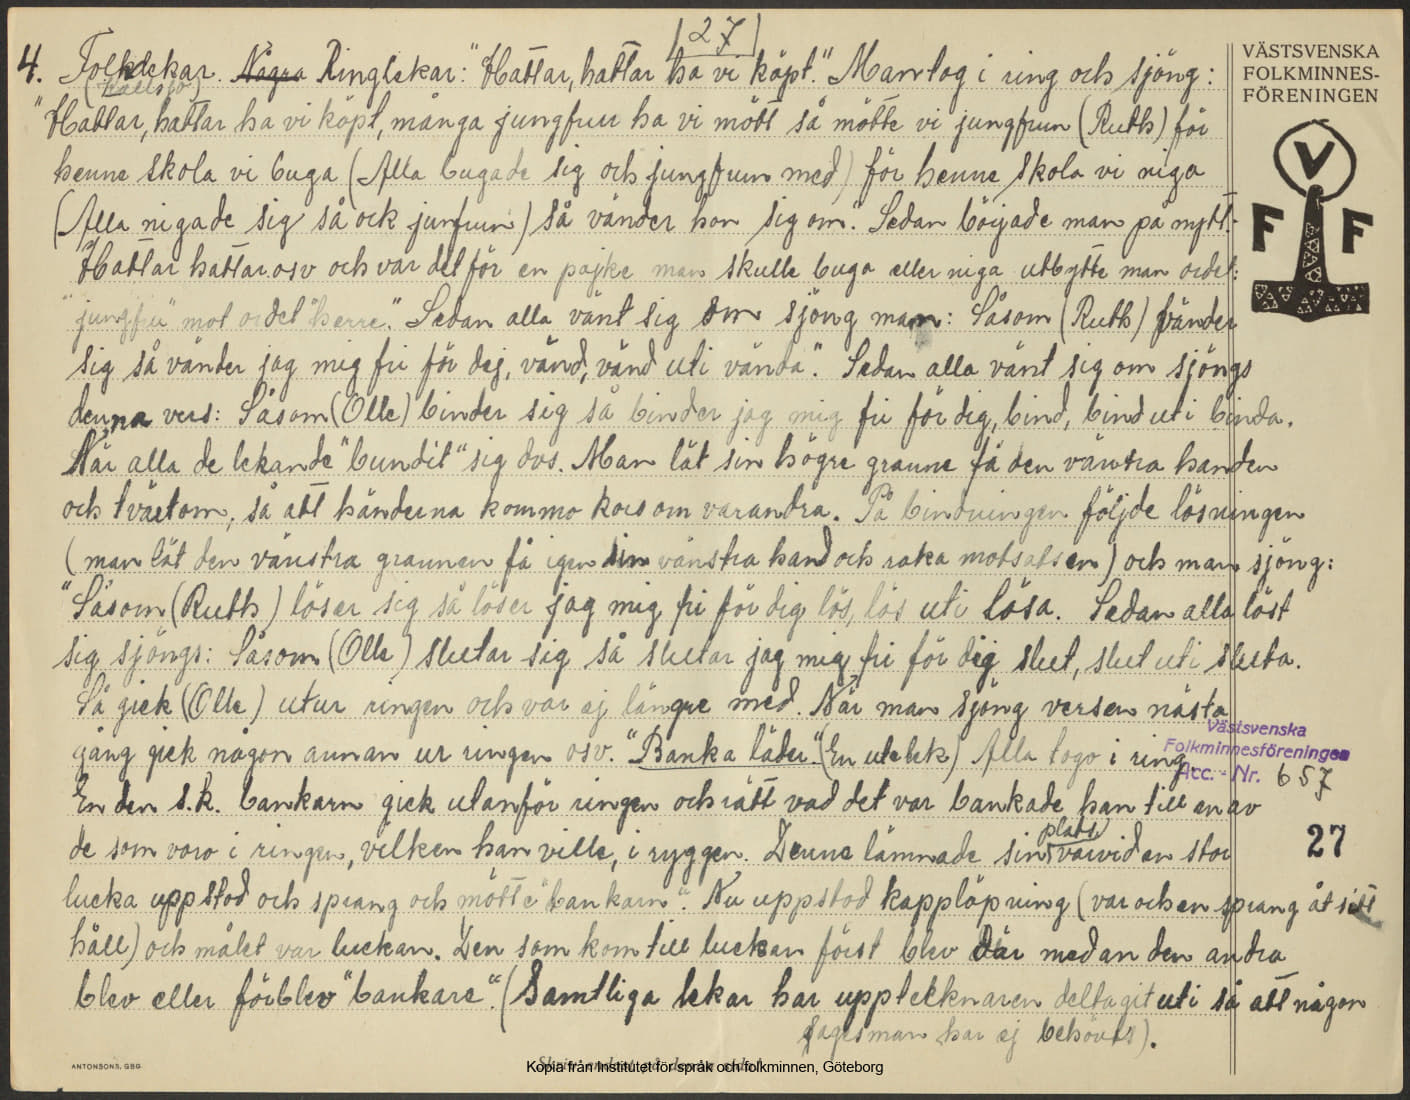 27
4. Folklekar. Några Ringlekar: "Hattar, hattar ha vi köpt." Man tog i ring och sjöng:
(Källsjö)
"Hattar, hattar ha vi köpt, många jungfrur ha vi mött så mötte vi jungfrun (Ruth) för
henne skola vi buga (Alla bugade sig och jungfrun med) för henne skola vi niga
(Alla nigade sig så ock junfrun) så vänder hon sig om." Sedan började man på nytt:
"Hattar hattar osv och var det för en pojke man skulle buga eller niga utbytte man ordet:
"jungfru" mot ordet "herre". Sedan alla vänt sig om sjöng man: Såsom (Ruth) vänder
sig så vänder jag mig fri för dej, vänd, vänd uti vända". Sedan alla vänt sig om sjöngs
denna vers: Såsom (Olle) binder sig så binder jag mig fri för dig, bind, bind uti binda.
När alla de lekande "bundit" sig dvs. Man lät sin högre granne få den vänstra handen
och tvärtom, så att händerna kommo kors om varandra. På bindningen följde lösningen
(man lät den vänstra grannen få igen sin vänstra hand och raka motsatsen) och man sjöng:
"Såsom (Ruth) löser sig så löser jag mig fri för dig lös, lös uti lösa. Sedan alla löst
sig sjöngs: Såsom (Olle) slutar sig så slutar jag mig fri för dig slut, slut uti sluta.
Så gick (Olle) utur ringen och var ej längre med. När man sjöng versen nästa
gång gick någon annan ur ringen osv. "Banka läder." (En utelek) Alla togo i ring.
En den s.k. bankarn gick utanför ringen och rätt vad det var bankade han till en av
de som voro i ringen, vilken han ville, i ryggen. Denne lämnade sin plats varvid en stor
lucka uppstod och sprang och mötte "bankarn". Nu uppstod kapplöpning (var och en sprang åt sitt
håll) och målet var luckan. Den som kom till luckan först blev där medan den andra
blev eller förblev "bankare". (Samtliga lekar har upptecknaren deltagit uti så att någon
sagesman har ej behövts).
VÄSTSVENSKA
FOLKMINNES-
FÖRENINGEN
V
F F
Västsvenska
Folkminnesföreningen
Acc. - Nr. 657
27
ANTONSONS, GBG
Kopia från Institutet för språk och folkminnen, Göteborg